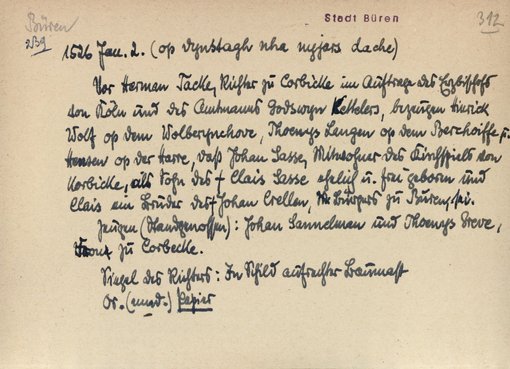 Büren
Stadt Büren
312
239
1526 Jan. 2. (op dynstagh nha nyjars dache)
Vor Herman Tacke, Richter zu Corbicke im Auftrage des Erzbischofs
von Köln und des Amtmanns Godswyn Kettelers, bezeugen Hinrick
Wolf op dem Wolberynchove, Thoenys Langen op dem Berchoiffe u.
Hensen op der Harre, daß Johan Sasse, Mitwohner des Kirchspiels von
Korbicke, als Sohn des † Clais Sasse ehelich u. frei geboren und
Clais ein Bruder des † Johan Crellen, Bürgers zu Büren, sei.
Zeugen (Standgenossen): Johan Sannelman und Thoenys Greve,
Vrone zu Corbecke.
Siegel des Richters: Im Schild aufrechter Baumast
Or. (mnd.) Papier